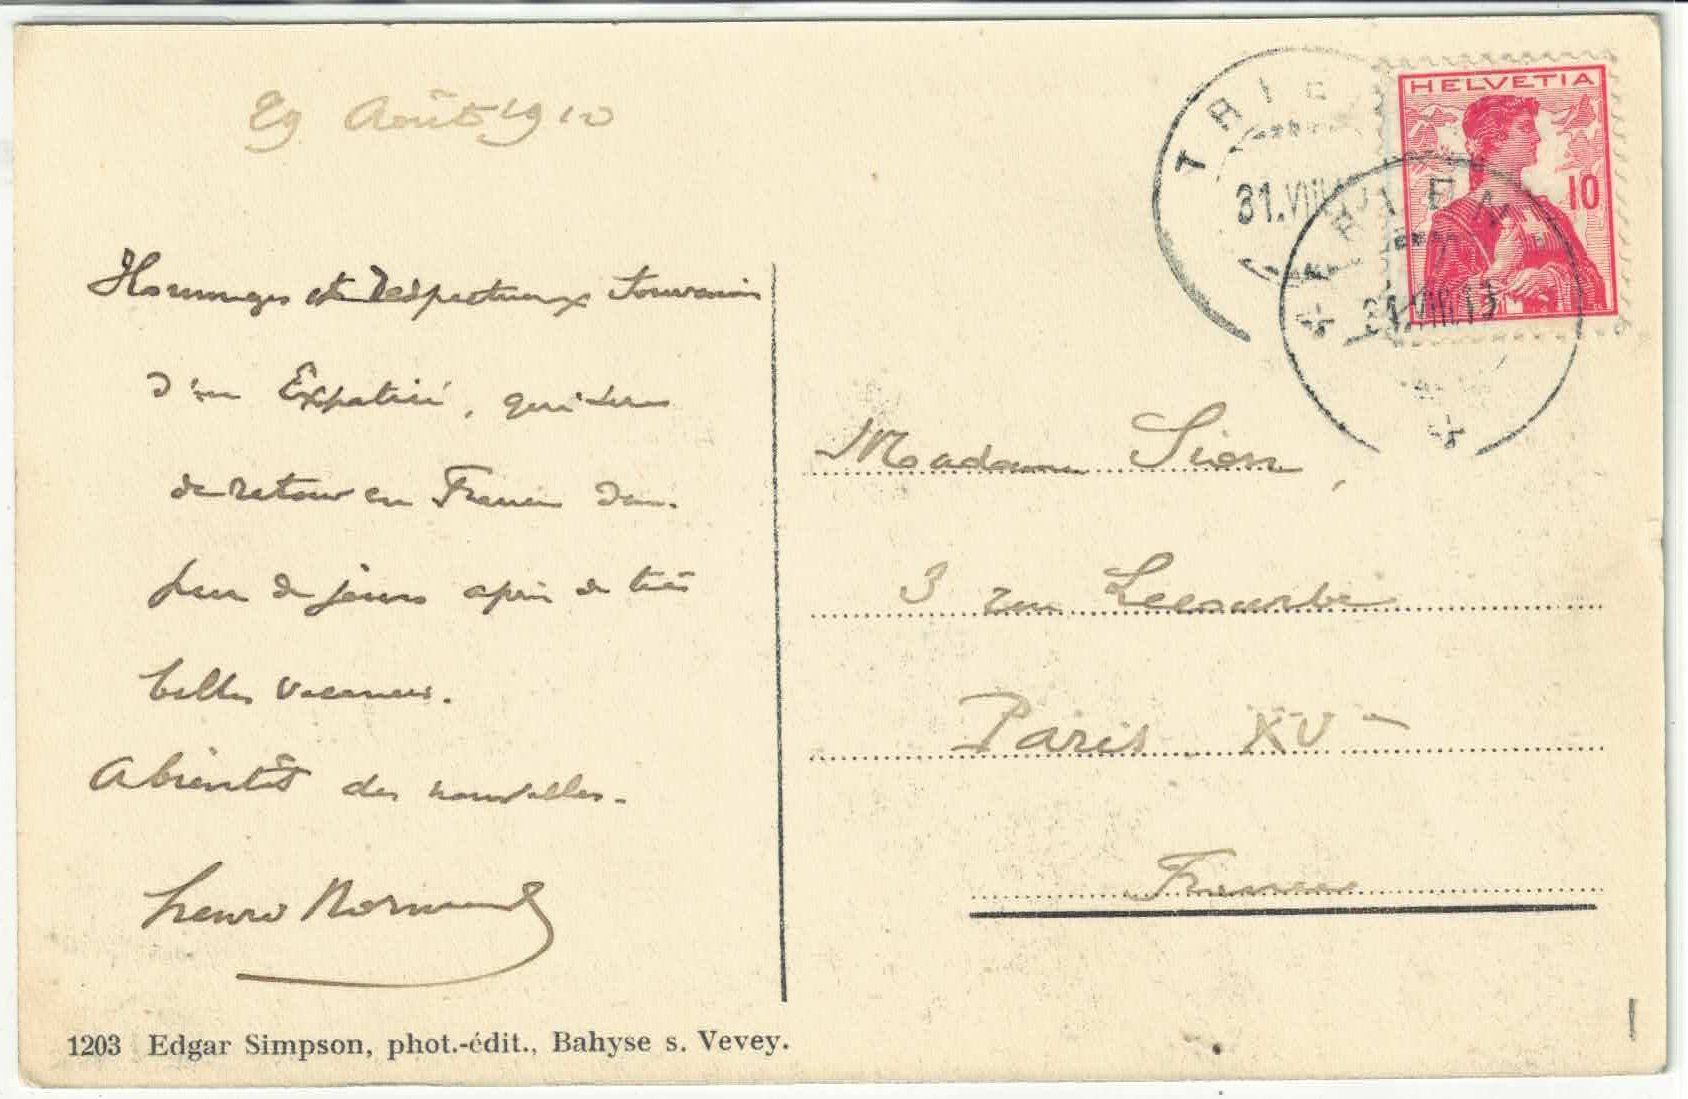 29 Août 1910
HELVETIA
10
TRIE
31.VIII
TRIEN
31.VIII.13
Hommages et Respectueux Souvenirs
d'un Expatrié, qui sera
de retour en France dans
peu de jours après de très
belles vacances.
A bientôt des nouvelles.
Henri Normand
Madame Sion,
3 rue Lecourbe
Paris XV
France
1203 Edgar Simpson, phot.-édit., Bahyse s. Vevey.